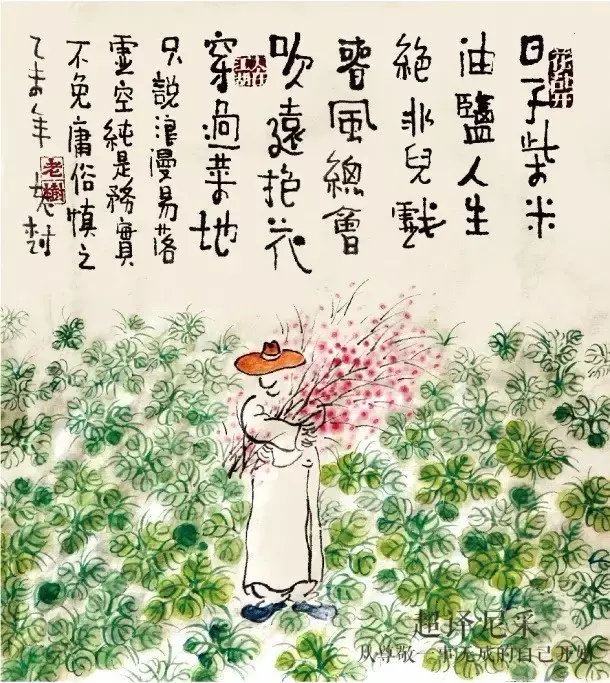 花乱开
日子柴米
油鹽人生
絕非兒戲
春風總會
吹遠抱花
人在江湖
穿過菜地
只說浪漫易落
虛空純是務實
不免庸俗慎之
乙未年老树
老樹
超译尼采
从尊敬一事无成的自己开始